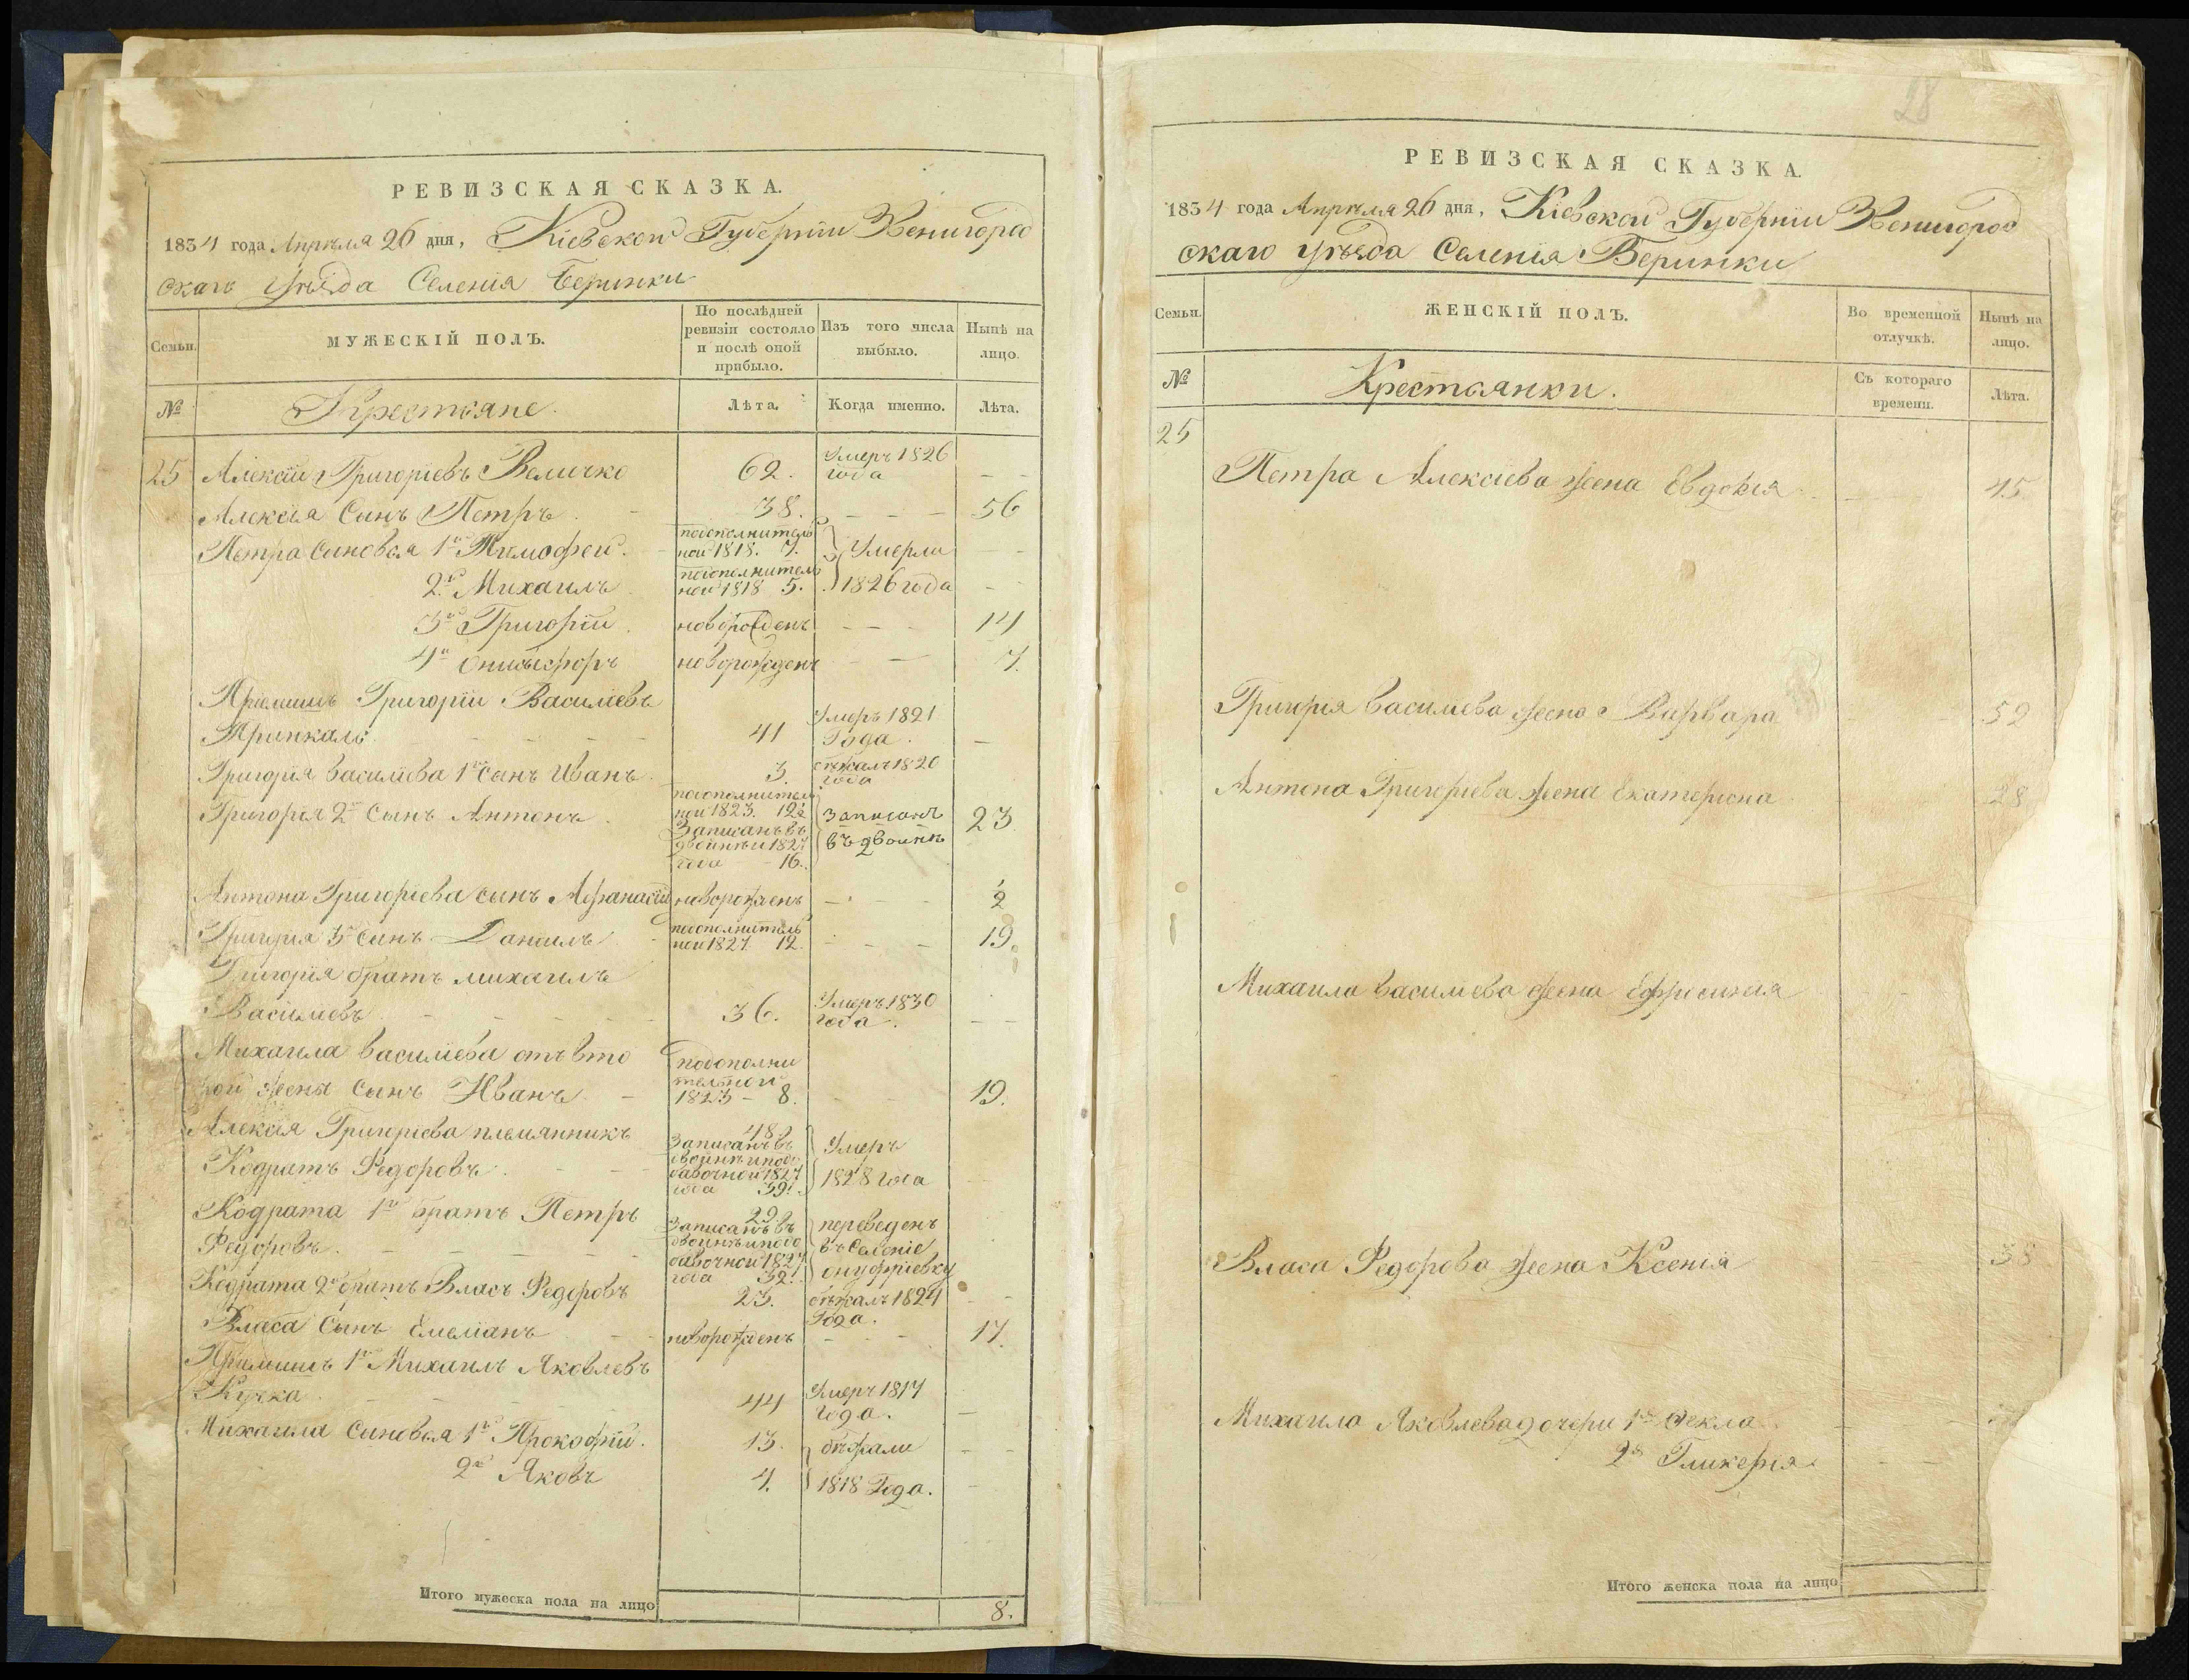 РЕВИЗСКАЯ СКАЗКА.
1834 года Апреля 26 дня, Кіевской Губерніи Звенигород
скаго уѣзда Селенія Беринки
Семьи.
МУЖЕСКІЙ ПОЛЪ.
По послѣдней
ревизіи состояло
и послѣ оной
прибыло.
Изъ того числа
выбыло.
Нынѣ на
лицо.
№
Крестьяне.
Лѣта.
Когда именно.
Лѣта.
25 Алексій Григоріевъ Величко 62. Умеръ 1826
года
Алексія Сынъ Петръ 38. 56
Петра синовья 1й Тимофей. подополнитель
ной 1818. 7. Умерли
2й Михаилъ подополнитель
ной 1818 5. 1826 года
3й Григорій новорожденъ 14
4й Онисифоръ новорожденъ 7.
Пріемишъ Григорій Василіевъ
Трипкаль 41 Умеръ 1821
Года.
Григорія Василіева 1й сынъ Иванъ 3. бежалъ 1820
года
Григорія 2й Сынъ Антонъ подополнитель
ной 1823. 12½
Записанъ въ
двойнѣ и 1827
года 16. записанъ
въ двойнѣ 23
Антона Григоріева сынъ Афанасій новорожденъ ½
Григорія 3й Сынъ Данилъ подополнитель
ной 1827 12. 19.
Григорія братъ михаилъ
Василіевъ 36. Умеръ 1830
года.
Михаила Василіева отъ вто
рой жены Сынъ Иванъ подополни
телной
1823 - 8. 19.
Алексія Григоріева племянникъ
Кодратъ Федоровъ 48.
Записанъ въ
двойнѣ иподо
бавочной 1827
года 59. Умеръ
1828 года
Кодрата 1й братъ Петръ
Федоровъ. 29
Записанъ въ
двойнѣ и подо
бавочной 1827
года 39. переведенъ
въ Селеніе
онуфріевку
Кодрата 2й братъ Власъ Федоровъ 23. бѣжалъ 1824
Года.
Власа Сынъ Емеліанъ новорожденъ 17.
Пріемишъ 1й Михаилъ Яковлевъ
Кучка 44 Умеръ 1817
года.
Михаила Синовья 1й Прокофій. 13. бѣжали
2й Яковъ 4. 1818 Года.
Итого мужеска пола на лицо 8.
28
РЕВИЗСКАЯ СКАЗКА.
1834 года Апреля 26 дня, Кіевской Губерніи Звенигород
скаго уѣзда Селенія Беринки
Семьи.
ЖЕНСКІЙ ПОЛЪ.
Во временной
отлучкѣ.
Нынѣ на
лицо.
№
Крестьянки.
Съ котораго
времени.
Лѣта.
25
Петра Алексіева жена Евдокія 45
Григорія Василіева жена Варвара 52
Антона Григоріева жена Екатерина 28
Михаила Василіева жена Ефросинія
Власа Федорова жена Ксенія 38
Михаила Яковлева дочери 1я Фекла
2я Гликерія
Итого женска пола на лицо